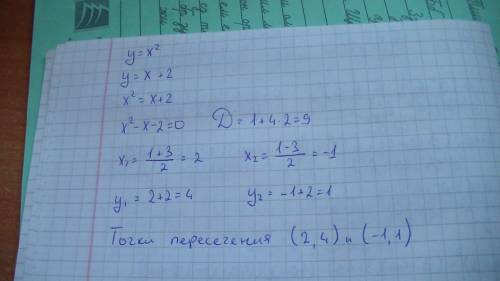 y=x²
y=x+2
x²=x+2
x²-x-2=0 D=1+4·2=9
x₁=\frac{1+3}{2}=2 x₂=\frac{1-3}{2}=-1
y₁=2+2=4 y₂=-1+2=1
Точки пересечения (2,4) и (-1,1)